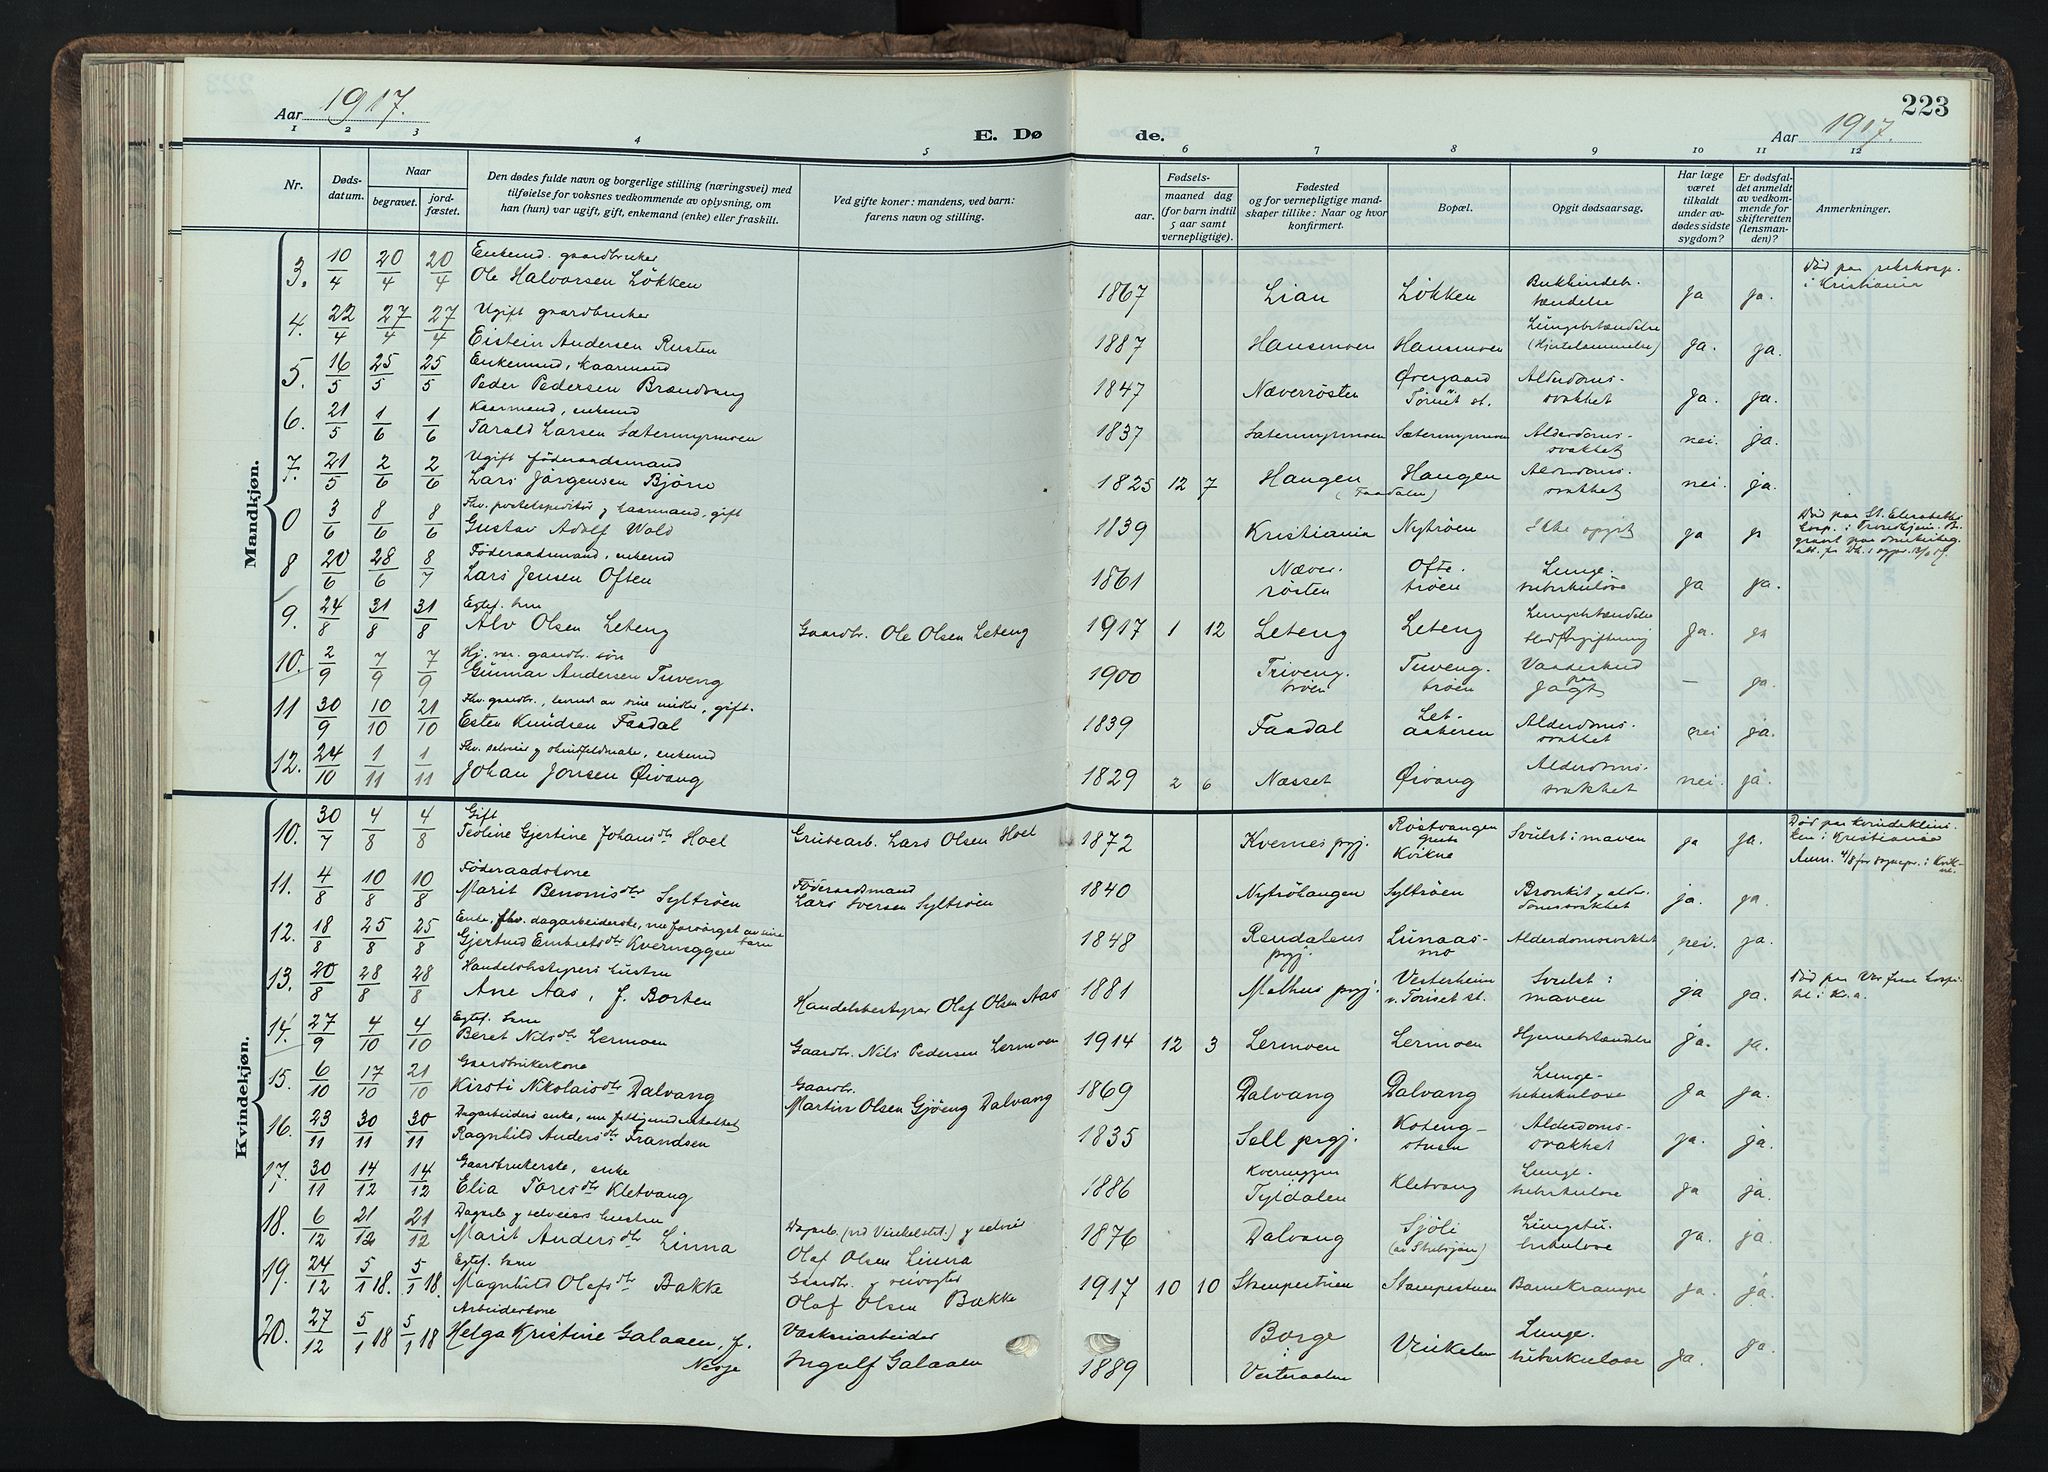 Aar 1917.
E. Dø
de.
Aar 1917.
223
1 2 3 4 5 6 7 8 9 10 11 12
Nr.
Døds-
datum.
Naar
begravet.
jord-
fæstet.
Den dødes fulde navn og borgerlige stilling (næringsvei) med
tilføielse for voksnes vedkommende av oplysning, om
han (hun) var ugift, gift, enkemand (enke) eller fraskilt.
Ved gifte koner: mandens, ved barn:
farens navn og stilling.
Fødsels-
aar.
maaned dag
(for barn indtil
5 aar samt
vernepligtige).
Fødested
og for vernepligtige mand-
skaper tillike: Naar og hvor
konfirmert.
Bopæl.
Opgit dødsaarsag.
Har læge
været
tilkaldt
under av-
dødes sidste
sygdom?
Er dødsfal-
det anmeldt
av vedkom-
mende for
skifteretten
(lensman-
den)?
Anmerkninger.
Mandkjøn.
3. 10/4 20/4 20/4 Enkemd. gaardbruker
Ole Halvorsen Løkken 1867 Lian Løkken ja ja.
i Kristiania
4. 22/4 27/4 27/4 Ugift gaardbruker
Eistein Andersen Rusten 1887 Hansmoen Hansmoen Lungebetændelse ja. ja.
5. 16/5 25/5 25/5 Enkemand, kaarmand
Peder Pedersen Brændvang 1847 Næverrøsten Øvergaard
Tønset st. Alderdoms-
svakhet ja. ja.
6. 21/5 1/6 1/6 Kaarmand, enkemd
Tarald Larsen Sætermyrmoen 1837 Sætermyrmoen Sætermyrmoen Alderdoms-
svakhet nei. ja.
7. 21/5 2/6 2/6 Ugift føderaadsmand
Lars Jørgensen Bjørn 1825 12 7 Haugen
(Faadalen) Haugen Alderdoms-
svakhet nei. ja.
0 3/6 8/6 8/6 Fhv. postekspeditør og kaarmand, gift
Gustav Adolf Wold 1839 Kristiania Nytrøen Ikke opgit ja ja
Død paa St. Elisabeths
hosp. i Trondhjem.
8 20/6 28/6 8/7 Føderaadsmand, enkemd
Lars Jensen Often 1861 Næver-
røsten Ofte-
trøen Lunge-
tuberkuløse ja ja.
9. 24/8 31/8 31/8 Egtef. barn
Alv Olsen Leteng Gaardbr. Ole Olsen Leteng 1917 1 12 Leteng Leteng Lungebetændelse
blodforgiftning ja. ja
10. 2/9 7/9 7/9 Hj. vær. gaardbr. søn
Gunnar Andersen Tuveng 1900 Tuveng-
trøen Tuveng-
trøen Vaadeskud
paa
jagt — ja.
11 30/9 10/10 21/10 Fhv. gaardbr., levned av sine midler, gift.
Esten Knudsen Faadal 1839 Faadal Alderdoms-
svakhet nei ja.
12. 24/10 1/11 1/11 enkemd
Johan Jonsen Øivang 1829 2 6 Næsset Øivang Alderdoms-
svakhet nei. ja
Kvindekjøn.
10. 30/7 4/8 4/8 Gift
Teoline Gjertine Johansdtr Hoel Grubearb. Lars Olsen Hoel 1872 Kvernes prgj. Røstvangen
grube
Kvikne Svulst i maven ja ja.
Død paa kvindeklini-
ken i Kristiania
11. 4/8 10/8 10/8 Føderaadskone
Marit Benonisdtr Syltrøen Føderaadsmand
Lars Iversen Syltrøen 1840 Nytrøhaugen Syltrøen Bronkit og alder-
domssvakhet ja. ja.
12. 18/8 25/8 25/8 Enke, fhv. dagarbeiderske, nu forsørget av sine
barn
Gjertrud Embretsdtr Kverneggen 1848 Rendalens
prgj. Lunaas-
mo Alderdomssvakhet nei. ja.
13. 20/8 28/8 28/8 Handelsbestyrers hustru
Ane Aas, f. Borten Handelsbestyrer Olaf Olsen Aas 1881 Melhus prgj. Vesterheim
v. Tønset st. Svulst i
maven ja ja.
Død paa Vor Frue hospi-
tal i Kr.a.
14. 27/9 4/10 4/10 Egtef. barn
Beret Nilsdtr Lermoen Gaardbr. Nils Pedersen Lermoen 1914 12 3 Lermoen Lermoen Hjernebetændelse ja. ja.
15. 6/10 17/10 21/10 Gaardbrukerkone
Kirsti Nikolaisdtr Dalvang Gaardbr.
Martin Olsen Gjøeng Dalvang 1869 Dalvang Dalvang Lunge-
tuberkuløse ja ja
16. 23/11 30/11 30/11 Dagarbeiders enke, nu fattigunderstøttet
Ragnhild Andersdtr Frandsen 1835 Sell prgj. Koteng-
stuen Alderdoms-
svakhet ja. ja.
17. 30/11 14/12 14/12 Gaardbrukerske, enke
Elia Toresdtr Kletvang 1886 Kverneggen
Tyldalen Kletvang Lunge-
tuberkuløse ja ja.
18. 6/12 21/12 21/12 Dagarb. og selveiers hustru
Marit Andersdtr Linna Dagarb. (ved Vinkelstet.) og selveier
Olaf Olsen Linna 1876 Dalvang Sjøli Lungetu-
berkuløse ja. ja.
19. 24/12 5/1 18. 5/1 18. Egtef. barn
Magnhild Olafsdtr Bakke Gaardbr. og veivogter
Olaf Olsen Bakke 1917 10 10 Stampestuen Stampestuen Barnekrampe ja. ja.
20. 27/12 5/1 18 5/1 18 Arbeiderkone
Helga Kristine Galaaen, f.
Nesje Væskeriarbeider
Ingulf Galaaen 1889 Borge
i
Vesteraalen Vinkelen Lunge-
tuberkuløse ja. ja.